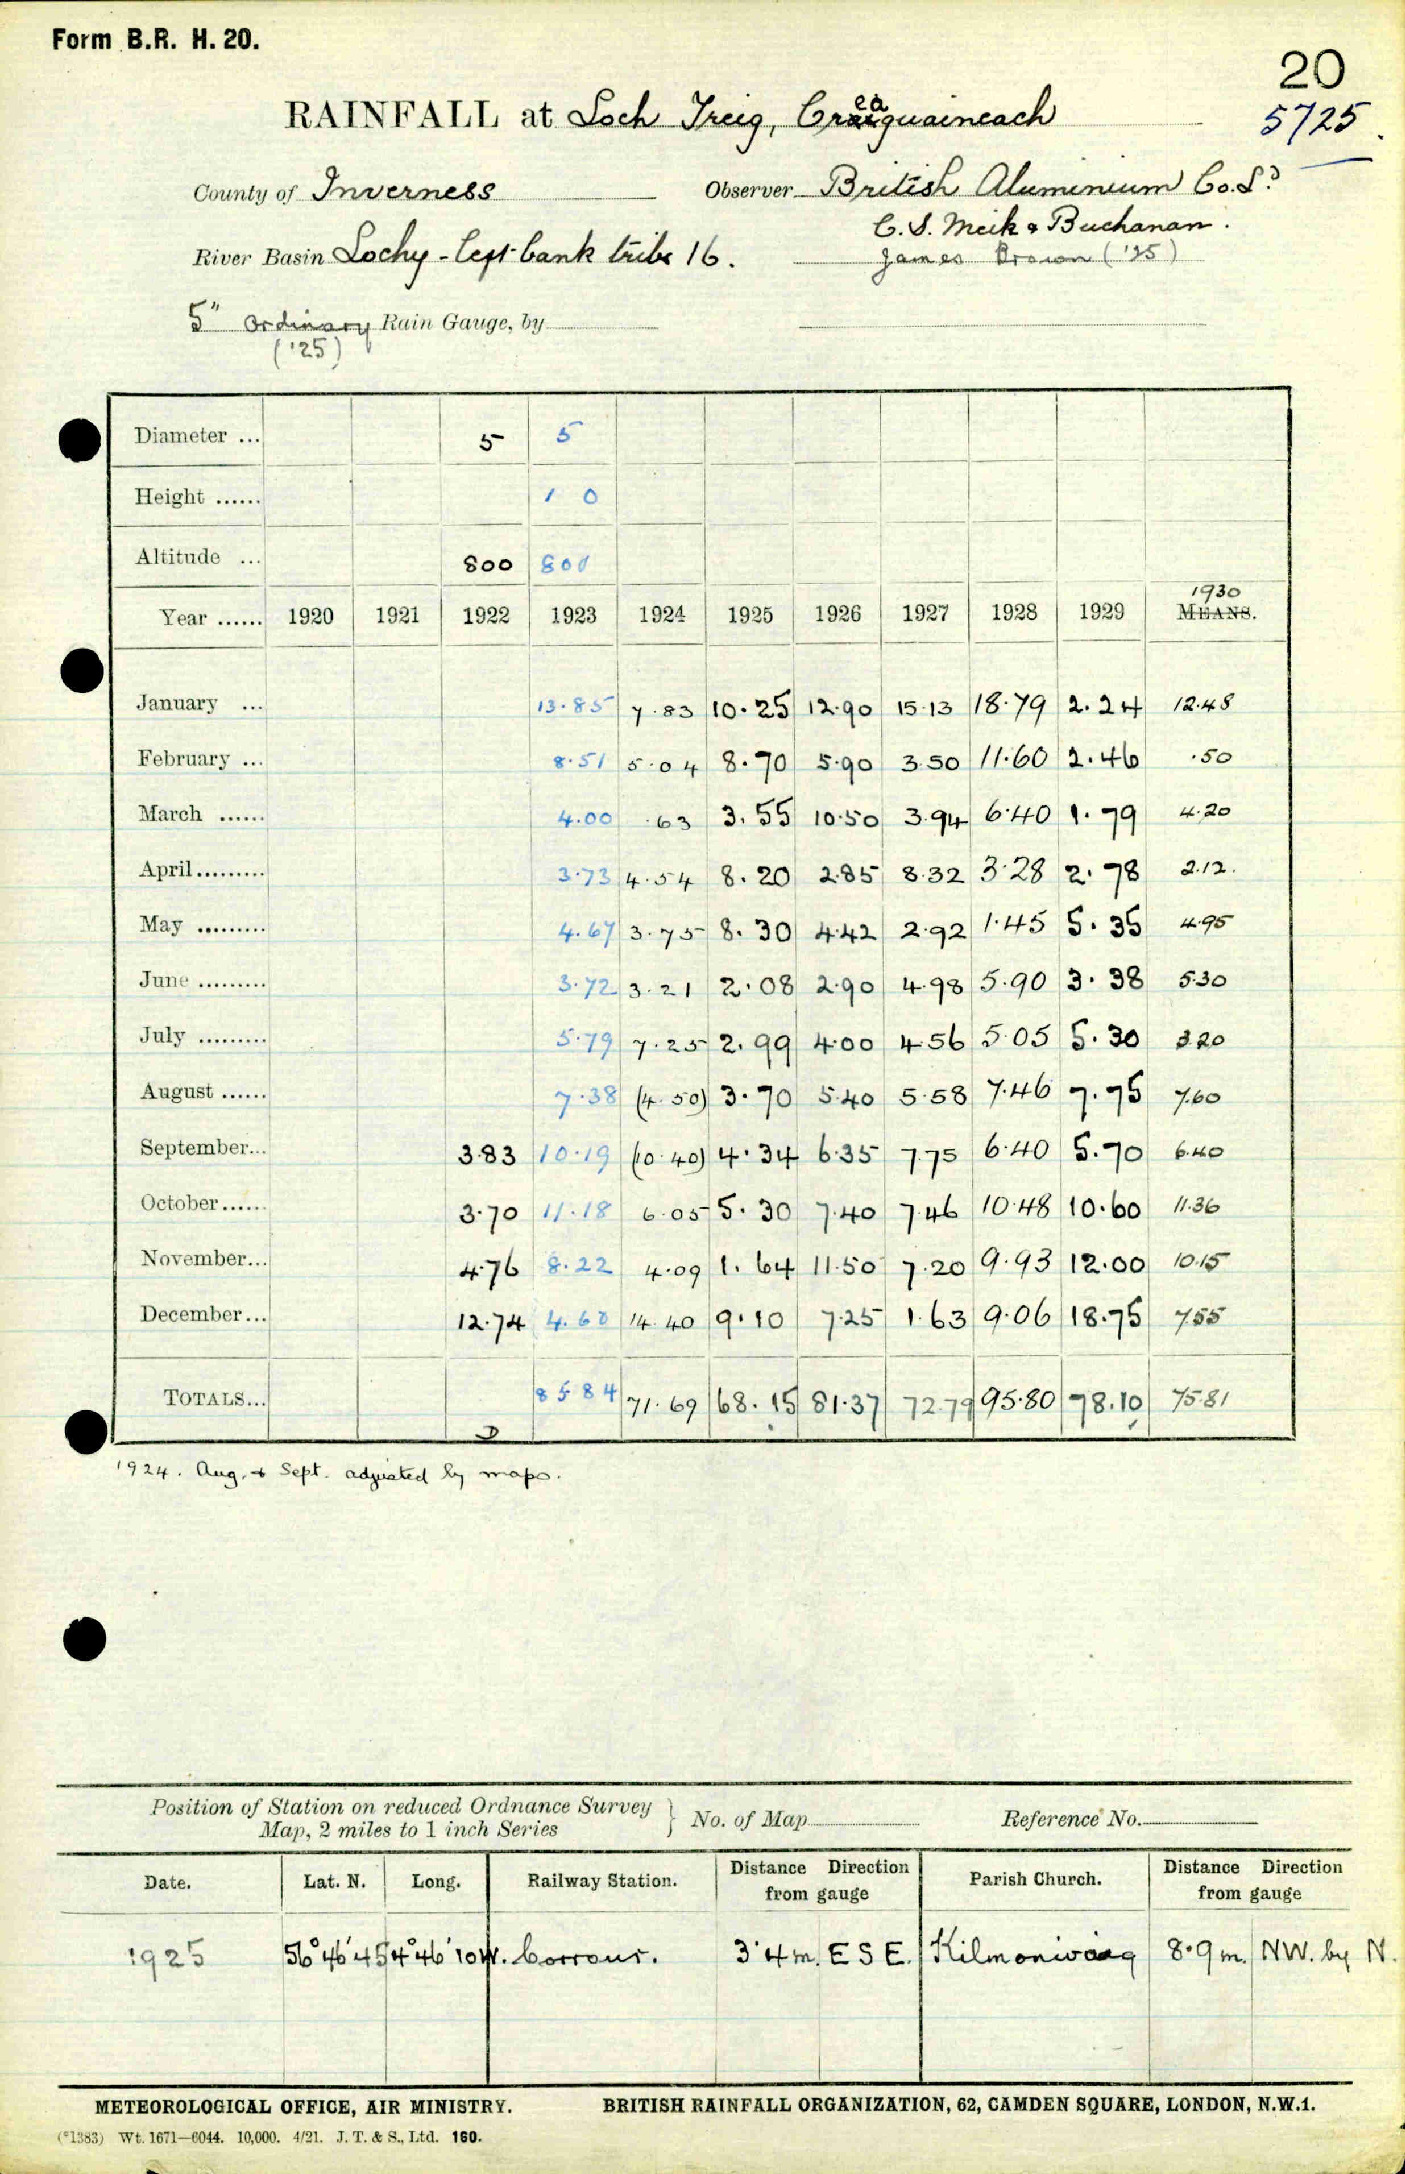 Form B.R. H. 20.
20
RAINFALL at Loch Treig, Creaguaineach
5725
County of Inverness Observer British Aluminium Co. Ld
C. S. Meik & Buchanan.
River Basin Lochy - left bank tribs 16. James Brown ('25)
5" ordinary Rain Gauge, by
('25)
Diameter ... 5 5
Height ...... 1 0
Altitude ... 800 800
Year ...... 1920 1921 1922 1923 1924 1925 1926 1927 1928 1929 1930 MEANS.
January ... 13.85 7.83 10.25 12.90 15.13 18.79 2.24 12.48
February ... 8.51 5.04 8.70 5.90 3.50 11.60 2.46 .50
March ...... 4.00 .63 3.55 10.50 3.94 6.40 1.79 4.20
April......... 3.73 4.54 8.20 2.85 8.32 3.28 2.78 2.12.
May ......... 4.67 3.75 8.30 4.42 2.92 1.45 5.35 4.95
June ......... 3.72 3.21 2.08 2.90 4.98 5.90 3.38 5.30
July ......... 5.79 7.25 2.99 4.00 4.56 5.05 5.30 3.20
August ...... 7.38 (4.50) 3.70 5.40 5.58 7.46 7.75 7.60
September... 3.83 10.19 (10.40) 4.34 6.35 7.75 6.40 5.70 6.40
October...... 3.70 11.18 6.05 5.30 7.40 7.46 10.48 10.60 11.36
November... 4.76 8.22 4.09 1.64 11.50 7.20 9.93 12.00 10.15
December... 12.74 4.60 14.40 9.10 7.25 1.63 9.06 18.75 7.55
TOTALS... 85 84 71.69 68.15 81.37 72.79 95.80 78.10 75.81
1924. Aug. & Sept. adjusted by maps.
Position of Station on reduced Ordnance Survey
Map, 2 miles to 1 inch Series } No. of Map Reference No.
Date. Lat. N. Long. Railway Station. Distance Direction from gauge Parish Church. Distance Direction from gauge
1925 56°46'45 4°46'10W. Corrour. 3.4m. E S E. Kilmonivaig 8.9m. NW. by N.
METEOROLOGICAL OFFICE, AIR MINISTRY. BRITISH RAINFALL ORGANIZATION, 62, CAMDEN SQUARE, LONDON, N.W.1.
(*1383) Wt. 1671—6044. 10,000. 4/21. J. T. & S., Ltd. 160.